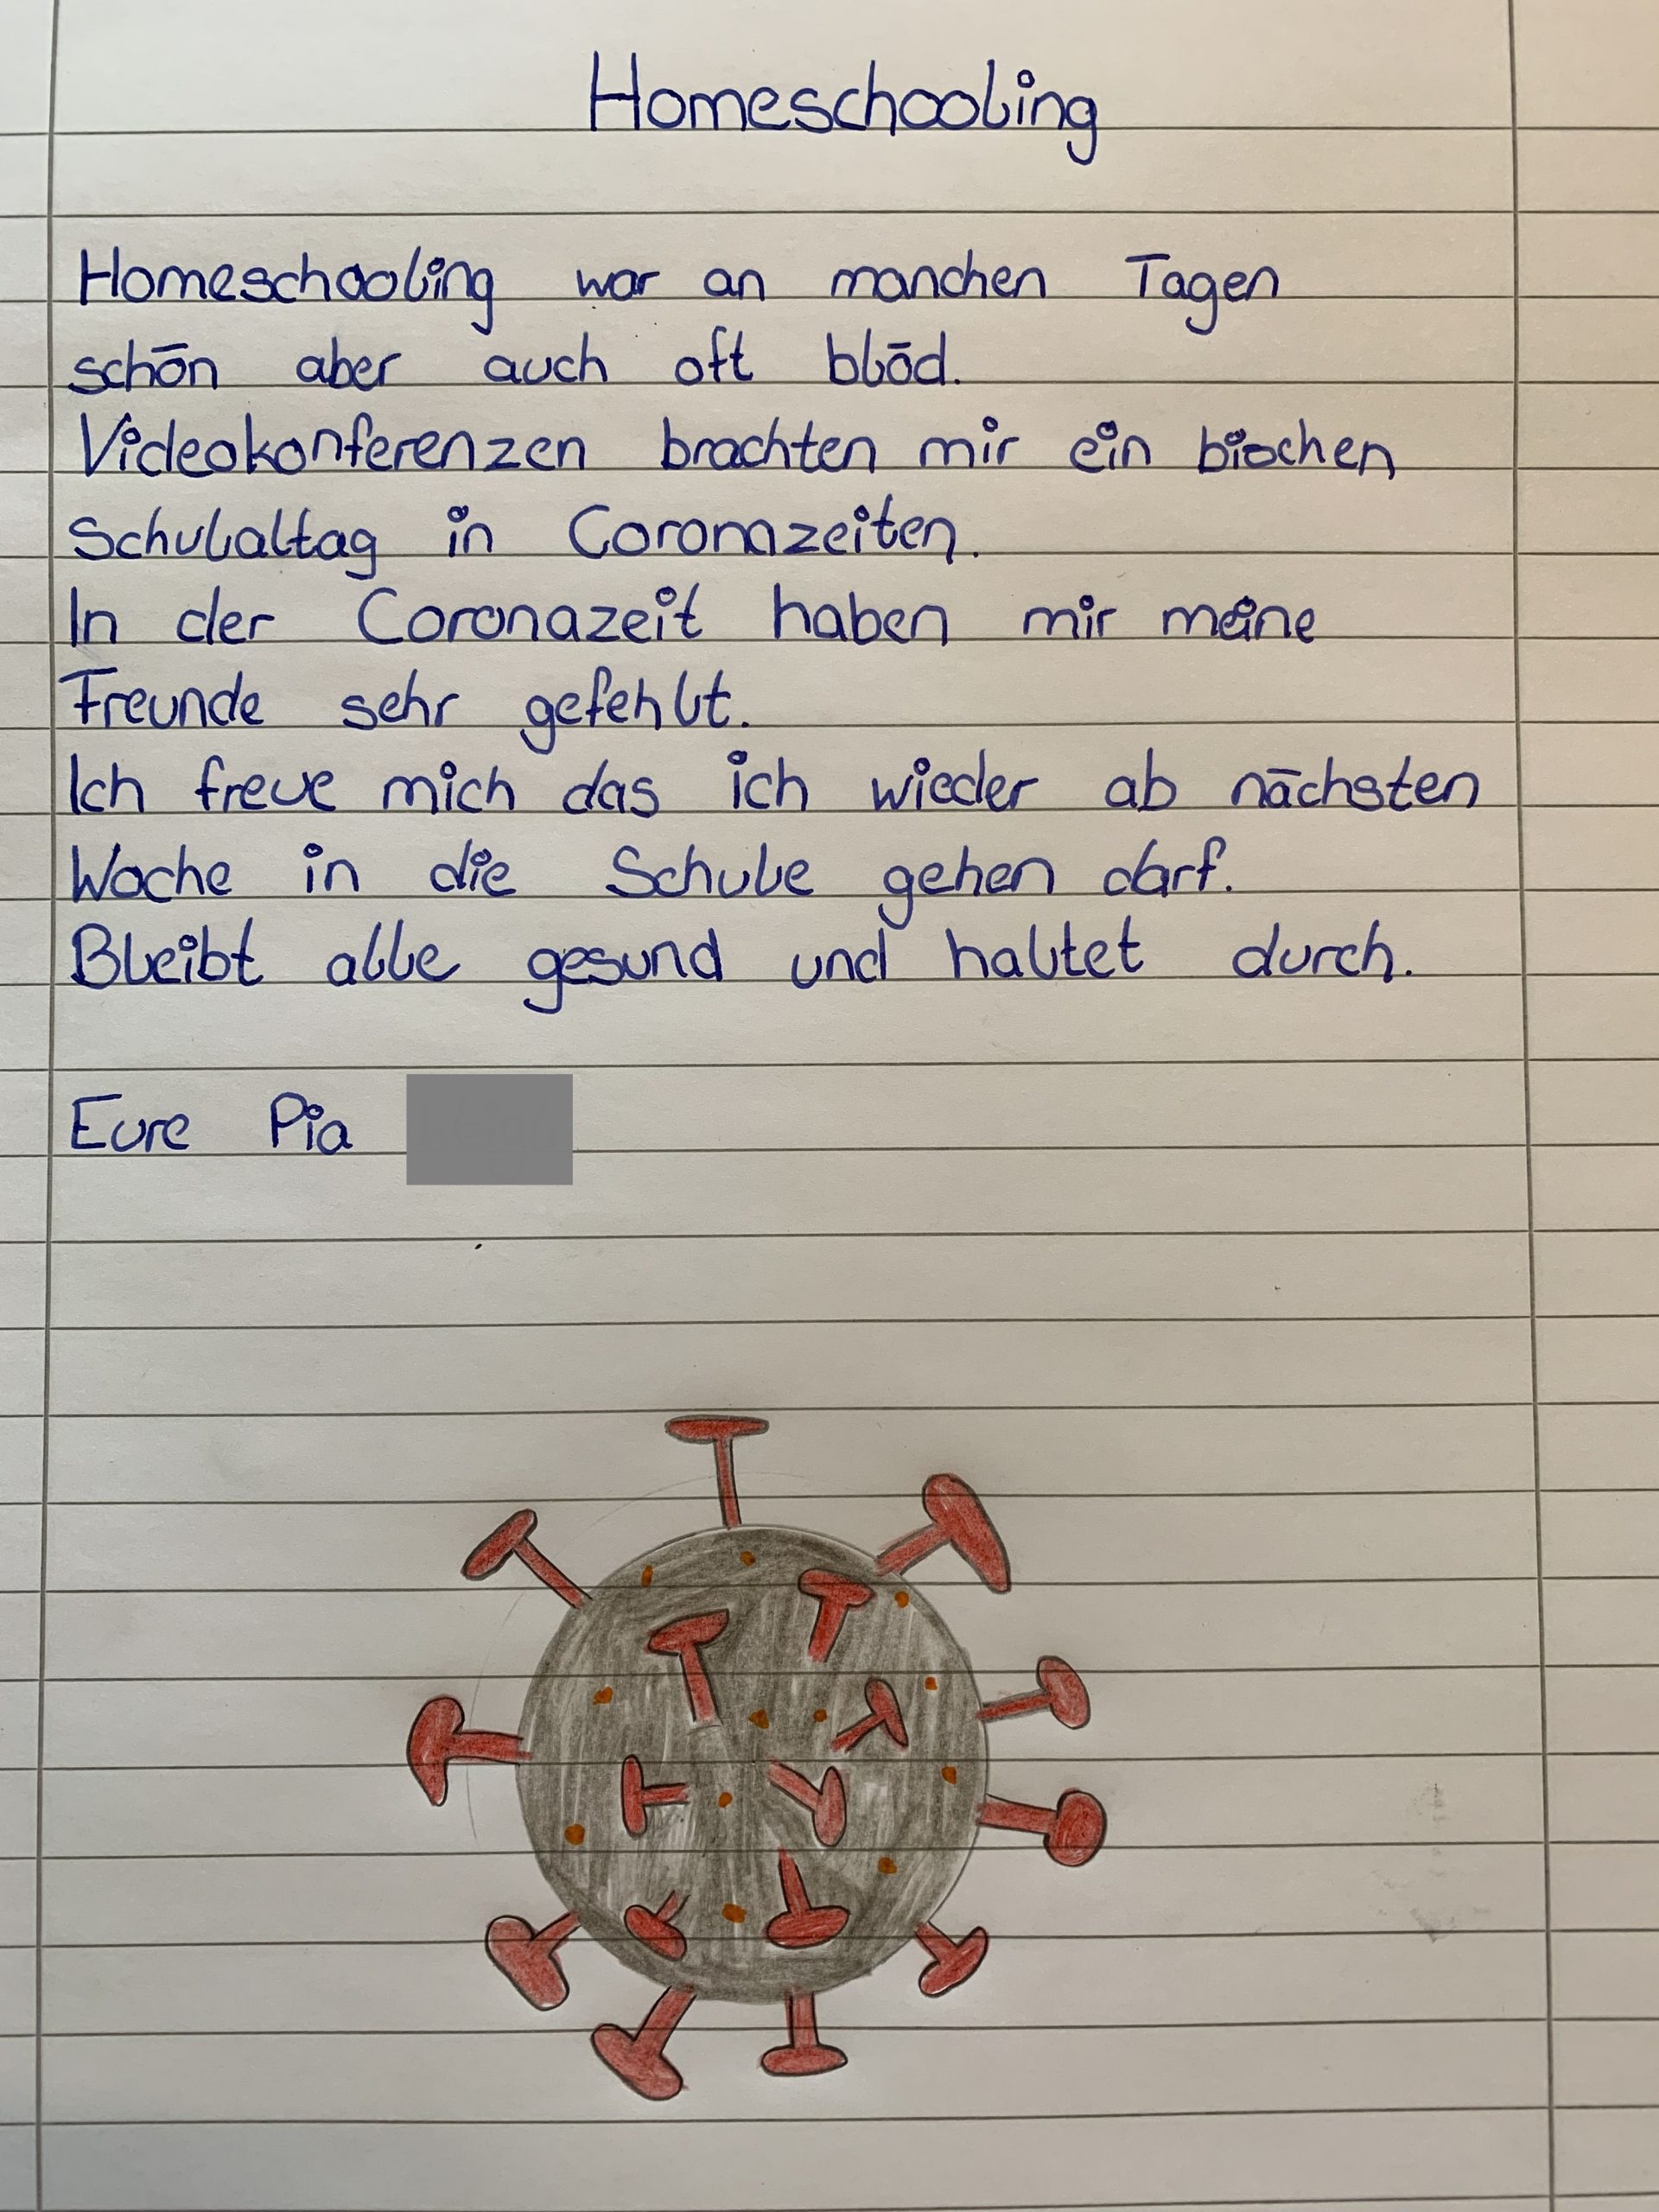 Homeschooling
Homeschooling war an manchen Tagen
schön aber auch oft blöd.
Videokonferenzen brachten mir ein bischen
Schulaltag in Coronazeiten.
In der Coronazeit haben mir meine
Freunde sehr gefehlt.
Ich freue mich das ich wieder ab nächsten
Woche in die Schule gehen darf.
Bleibt alle gesund und haltet durch.
Eure Pia